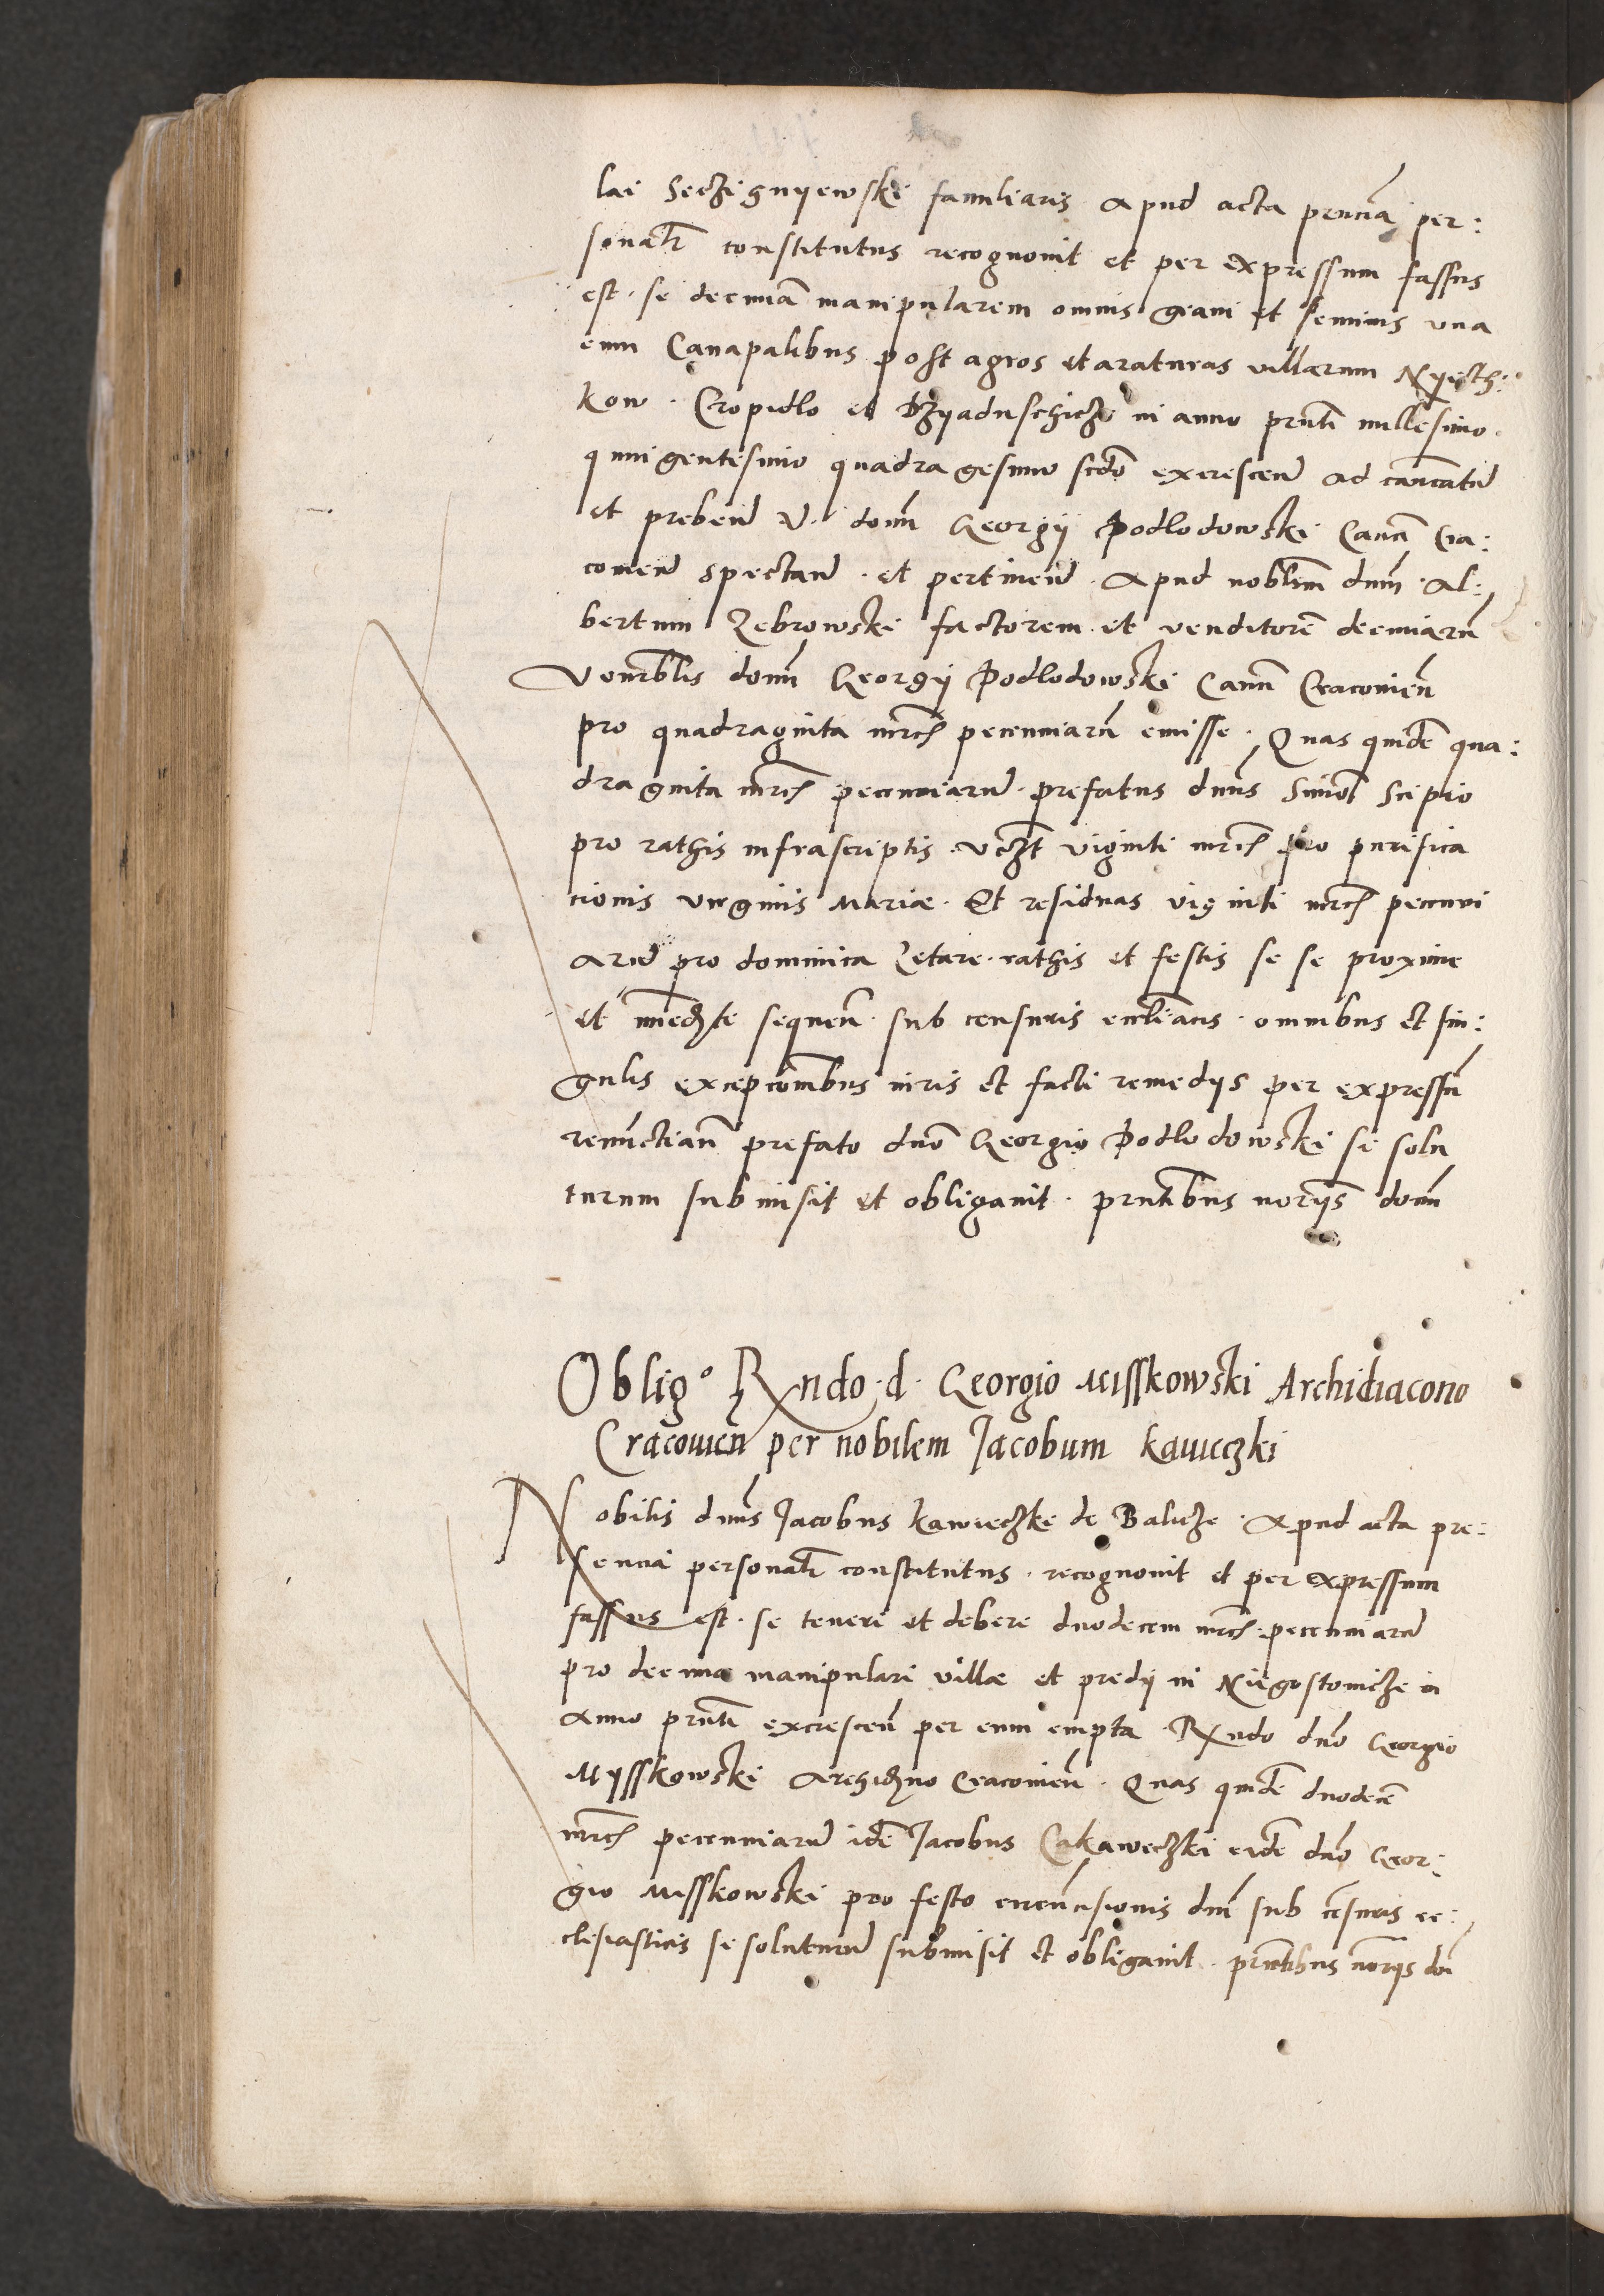 lai Seczignyewski familiaris apud acta prncia per:
sonalr constitutus recognovit et per expressum fassus
est. se decima manipularem omnis grani et seminis una
cum Canapalibus post agros et araturas villarum Nyeth:
kow. Cropidlo et Dzyaduschicze in anno prnti millesimo
quingentesimo quadragesimo scdo excrescen ad canicatu
et preben V. domi Georgii Podlodowski Canci Cra:
covien spectan. et pertinen. Apud noblem dnm. Al:
bertum Zebrowski factorem et venditore decimaru
Venerblis domi Georgii Podlodowski Canci Cracovien
pro quadraginta mrcs pecuniaru emisse. Quas quide qua:
draginta mrcs pecuniaru. prefatus dnus Simon Scipio
pro rathis infrascriptis. Vczt viginti mrcs pro purifica
tionis virginis Mariae. Et residuas viginti mrcs pecuni
aru pro dominica Letare. rathis et festis se se proxime
et imediate sequen. sub censuris eccliacis. omnibus et sin:
gulis excepcionibus iuris et facti remediis per expressu
renunctian prefato dno Georgio Podlodowski se solu
turum submisit et obligavit. prntibus noriis domi
Oblig° Rndo. d. Georgio Misskowski Archidiacono
Cracovien per nobilem Jacobum Kawieczki
Nobilis dnus Jacobus Kawieczke de Balicze. Apud acta pre:
sencia personalr constitutus. recognovit et per expressum
fassus est. se teneri et debere duodecem mrcs pecuniaru
pro decima manipulari villae et predii in Niegostowicze in
Anno prnti excrescen per eum empta. Rndo dno Georgio
Mysskowski Archidno Cracovien. Quas quide duodece
mrcs pecuniaru ide Jacobus Cakaweczki eide dno Geor:
gio Misskowski pro festo circumcisionis dni sub censuris ec:
clesiasticis se soluturu submisit et obligavit. prntibus noriis domi